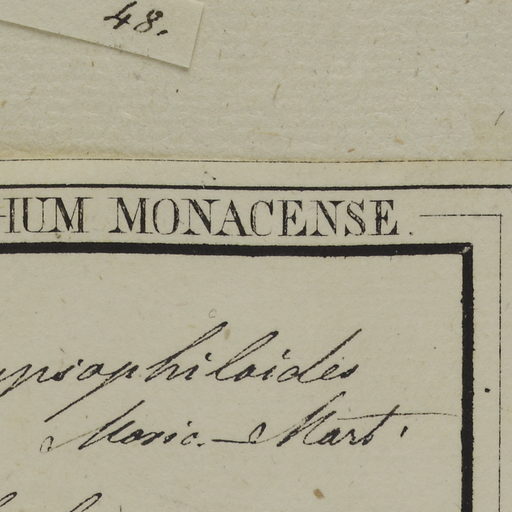 48.
HIUM MONACENSE.
ypsophiloides
Moric. Mart.